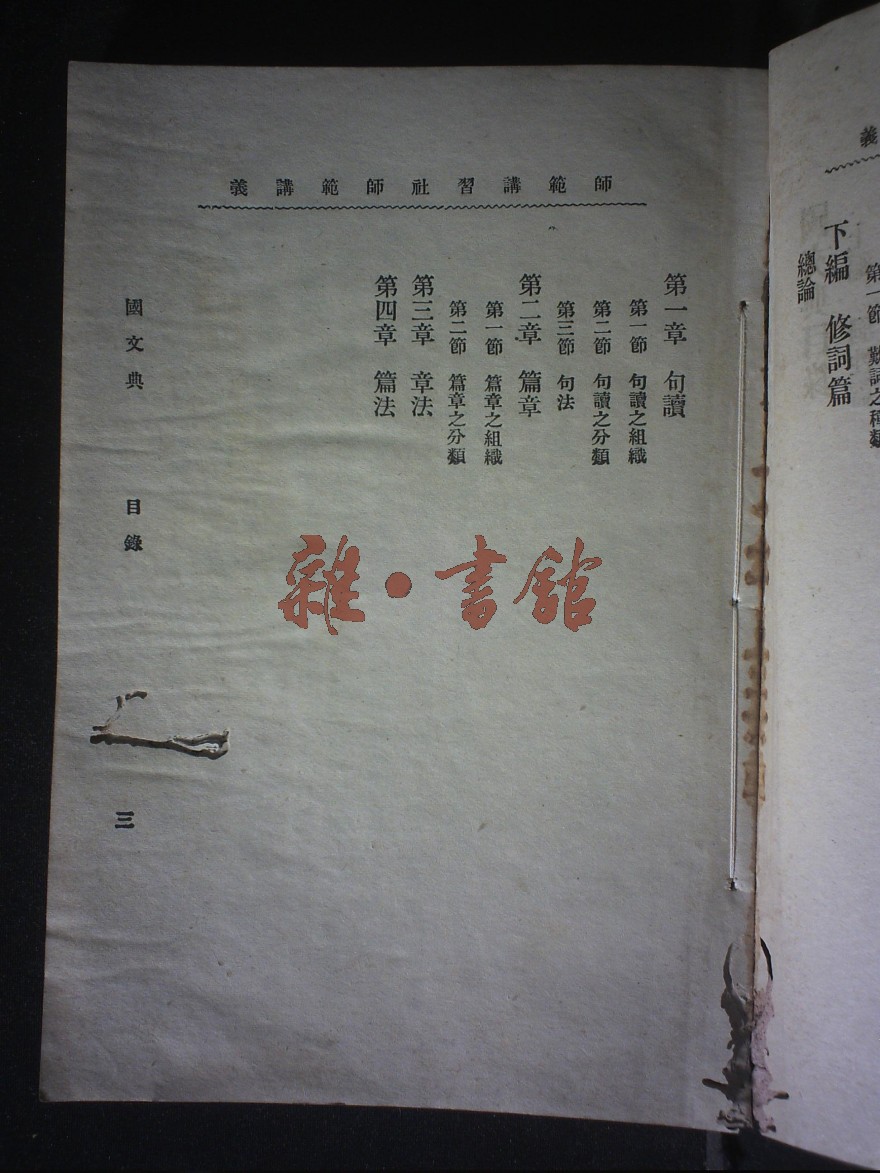 義
第一節 歎詞之種類
下編 修詞篇
總論
師範講習社師範講義
第一章 句讀
第一節 句讀之組織
第二節 句讀之分類
第三節 句法
第二章 篇章
第一節 篇章之組織
第二節 篇章之分類
第三章 章法
第四章 篇法
國文典 目錄 三
雜·書館